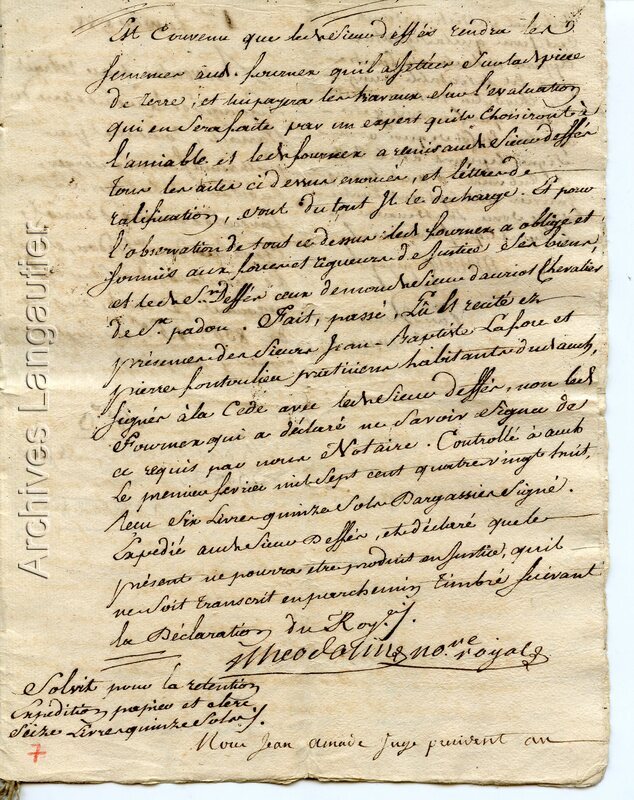 Est Convenu que led. Sieur d'essés rendra les
semences aud. fournex qu'il a jettées Sur lad. piece
de terre; et lui payera les travaux Sur l'evaluation
qui en Sera faite par un expert qu'ils choisiront à
l'amiable. et led. fournex a remis aud. Sieur d'essés
tous les actes ci dessus enoncés, et lettres de
ratification, dont du tout Il le decharge. Et pour
l'observation de tout ce dessus led. fournex a obligé et
soumis aux forces et rigueurs de Justice Ses biens,
et led. Sr. Dessés ceux de mond. Sieur Chevalier
de St. padou. Fait, passé, Lû et recité ez
présences des Sieurs Jean-Baptiste Lafore et
pierre fontoulieu praticiens habitants dud. auch,
signés à la Cede avec led. Sieur d'essés, non led.
Fournex qui a déclaré ne Savoir Signer de
ce requis par nous Notaire. Controllé à auch
le premier fevrier mil Sept cent quatre vingt huit,
reçu Six Livres quinze Sols Dargassies Signé.
Expedié aud. Sieur Dessés, et déclaré que le
présent ne pourra etre produit en Justice, qu'il
ne Soit transcrit en parchemin timbré Suivant
la Déclaration du Roy.
no.re royal
Solvit pour la retention
Expedition papier et clerc
Seize Livres quinze Sols
Nous Jean amade Juge
7
Archives Langautier